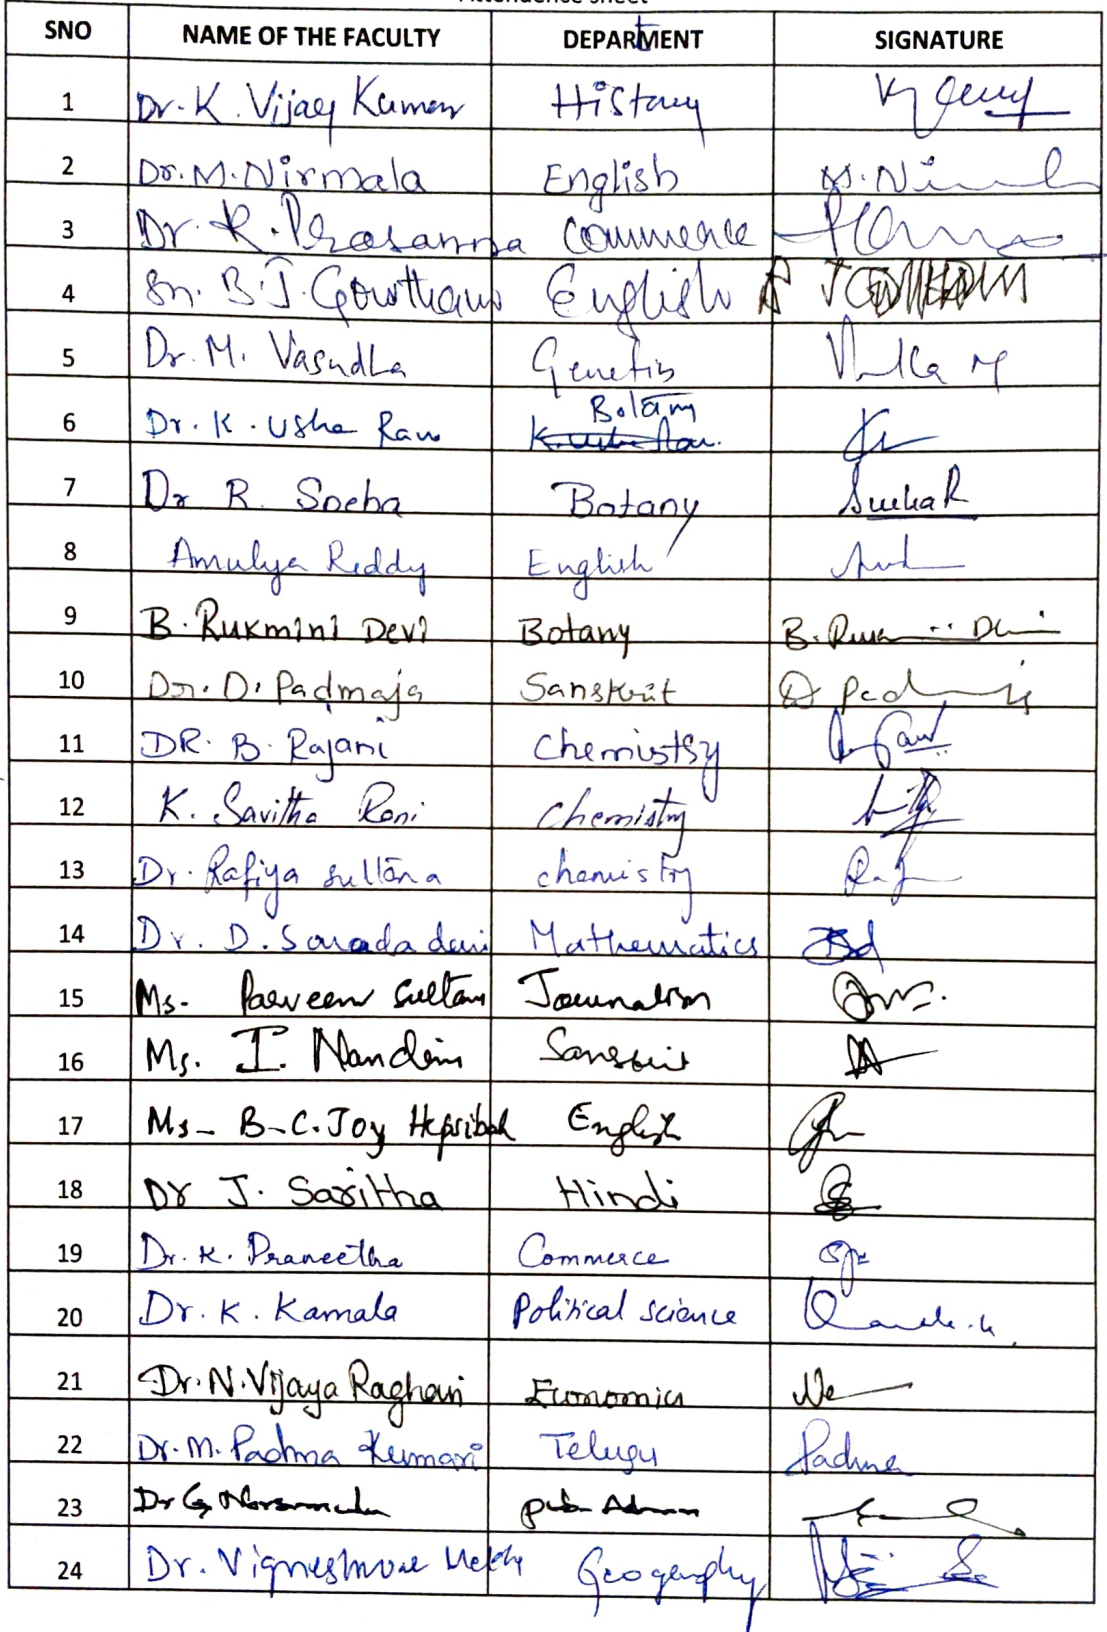 Attendence Sheet
SNO NAME OF THE FACULTY DEPARTMENT SIGNATURE
1 Dr. K. Vijay Kumar History
2 Dr. M. Nirmala English
3 Dr. R. Prasanna Commerce
4 B.J. Gowtham English
5 Dr. M. Vasudha Genetics
6 Dr. K. Usha Rani Botany
7 Dr R. Sneha Botany Sneha R
8 Amulya Reddy English
9 B. Rukmini Devi Botany
10 Dr. D. Padmaja Sanskrit
11 DR. B. Rajani Chemistry
12 K. Savitha Rani Chemistry
13 Dr. Rafiya Sultana chemistry
14 Dr. D. Sarada devi Mathematics
15 Ms. Parveen Sultana Journalism
16 Ms. I. Nandini Sanskrit
17 Ms. B.C. Joy Hepsibah English
18 Dr J. Saritha Hindi
19 Dr. K. Praneetha Commerce
20 Dr. K. Kamala Political science
21 Dr. N. Vijaya Raghavi Economics
22 Dr. M. Padma Kumari Telugu Padma
23 Dr G pub. Admn
24 Dr. Vigneshwar Reddy Geography